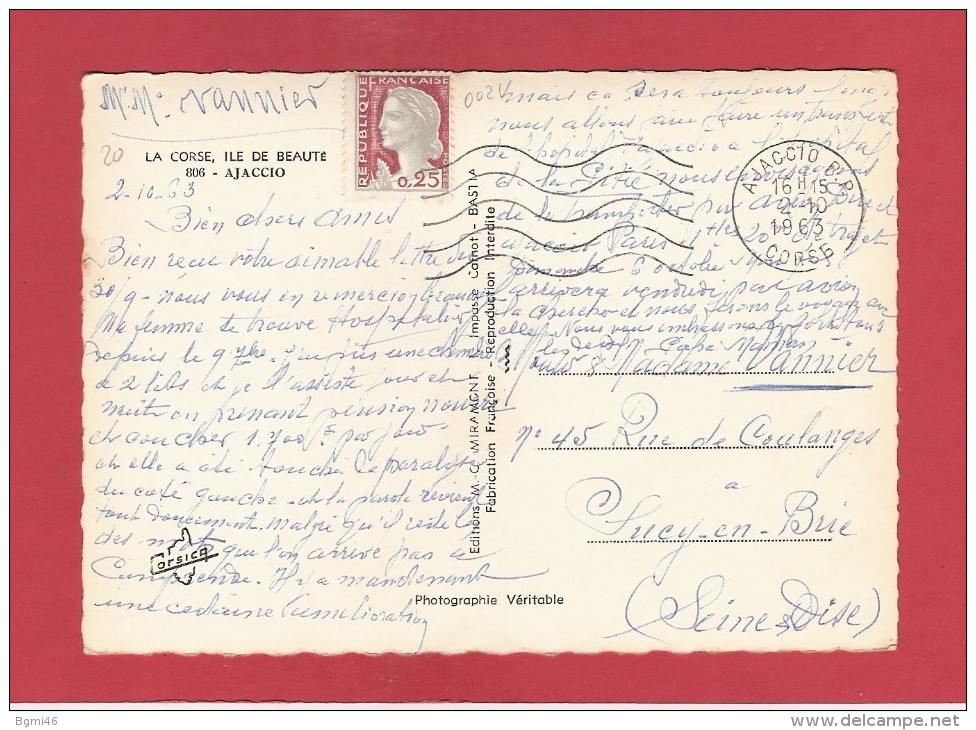 Mr Me Vannier
20
LA CORSE, ILE DE BEAUTÉ
806 - AJACCIO
2-10-63
Bien chers amis
Bien reçu votre aimable lettre du
30/9 - nous vous en remercions
Ma femme se trouve Hospitalisée
depuis le 9 7bre. une chambre
à 2 lits et je l'assiste jour et
nuit en prenant pension
et coucher 1.700 f par jour
elle a été touchée de paralysie
du coté gauche - la parole revient
tout doucement. malgré qu'il reste
des mots que l'on arrive pas à
Comprendre. Il y a maintenant
une certaine amélioration
Corsica
REPUBLIQUE FRANÇAISE
0,25
Editions M.-C. MIRAMONT, Impasse Carnot - BASTIA
Fabrication Française - Reproduction Interdite
Photographie Véritable
0024
mais ça sera toujours long
nous allons faire un transfert
de l'hopital d'ajaccio a l'hopital
de la nous envisageons
de la par avion
Paris
Dimanche 6 octobre
arrivera vendredi par avion
la chercher et nous ferons le voyage avec
elle. Nous vous embrassons
les deux Papa Maman
AJACCIO R.P.
16 H 15
2-10
1963
CORSE
Madame Vannier
n° 45 Rue de Coulanges
a
Sucy-en-Brie
(Seine & Oise)
Bgmi46
www.delcampe.net